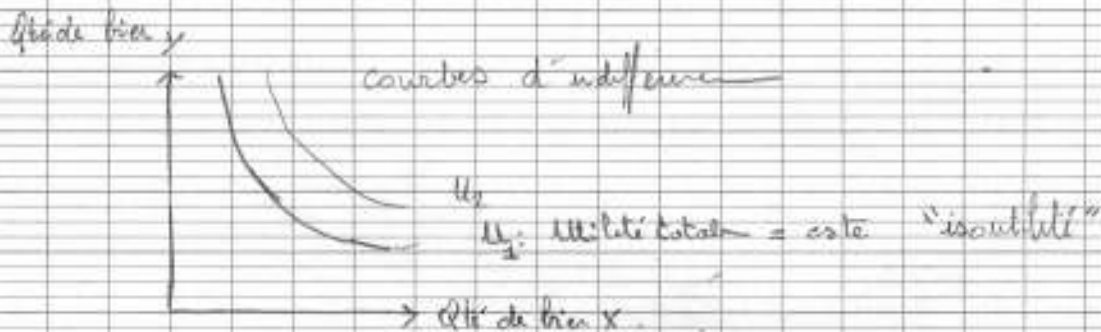 Qté de bien y
courbes d'indifférence
U2
U1: Utilité totale = cste "isoutilité"
Qté de bien X.